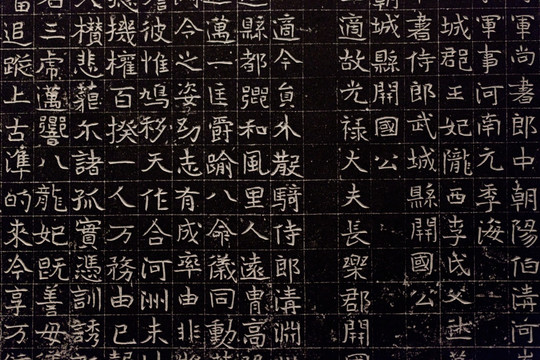 軍尚書郎中朝陽伯清河
軍事河南元季海
城郡王妃隴西李氏父
書侍郎武城縣開國公
城縣開國公
適故光祿大夫長樂郡開國
適今員外散騎侍郎清淵
縣都鄉和風里人遠冑高
萬一匡爵踰八命儀同動
今之姿幼志有成率由非
彼惟鳩移天作合河洲未
機權百揆一人万務由已
悲蘿尔諸孤實憑訓誘
三虎萬響八龍妃既善母
追蹤上古準的來今享万